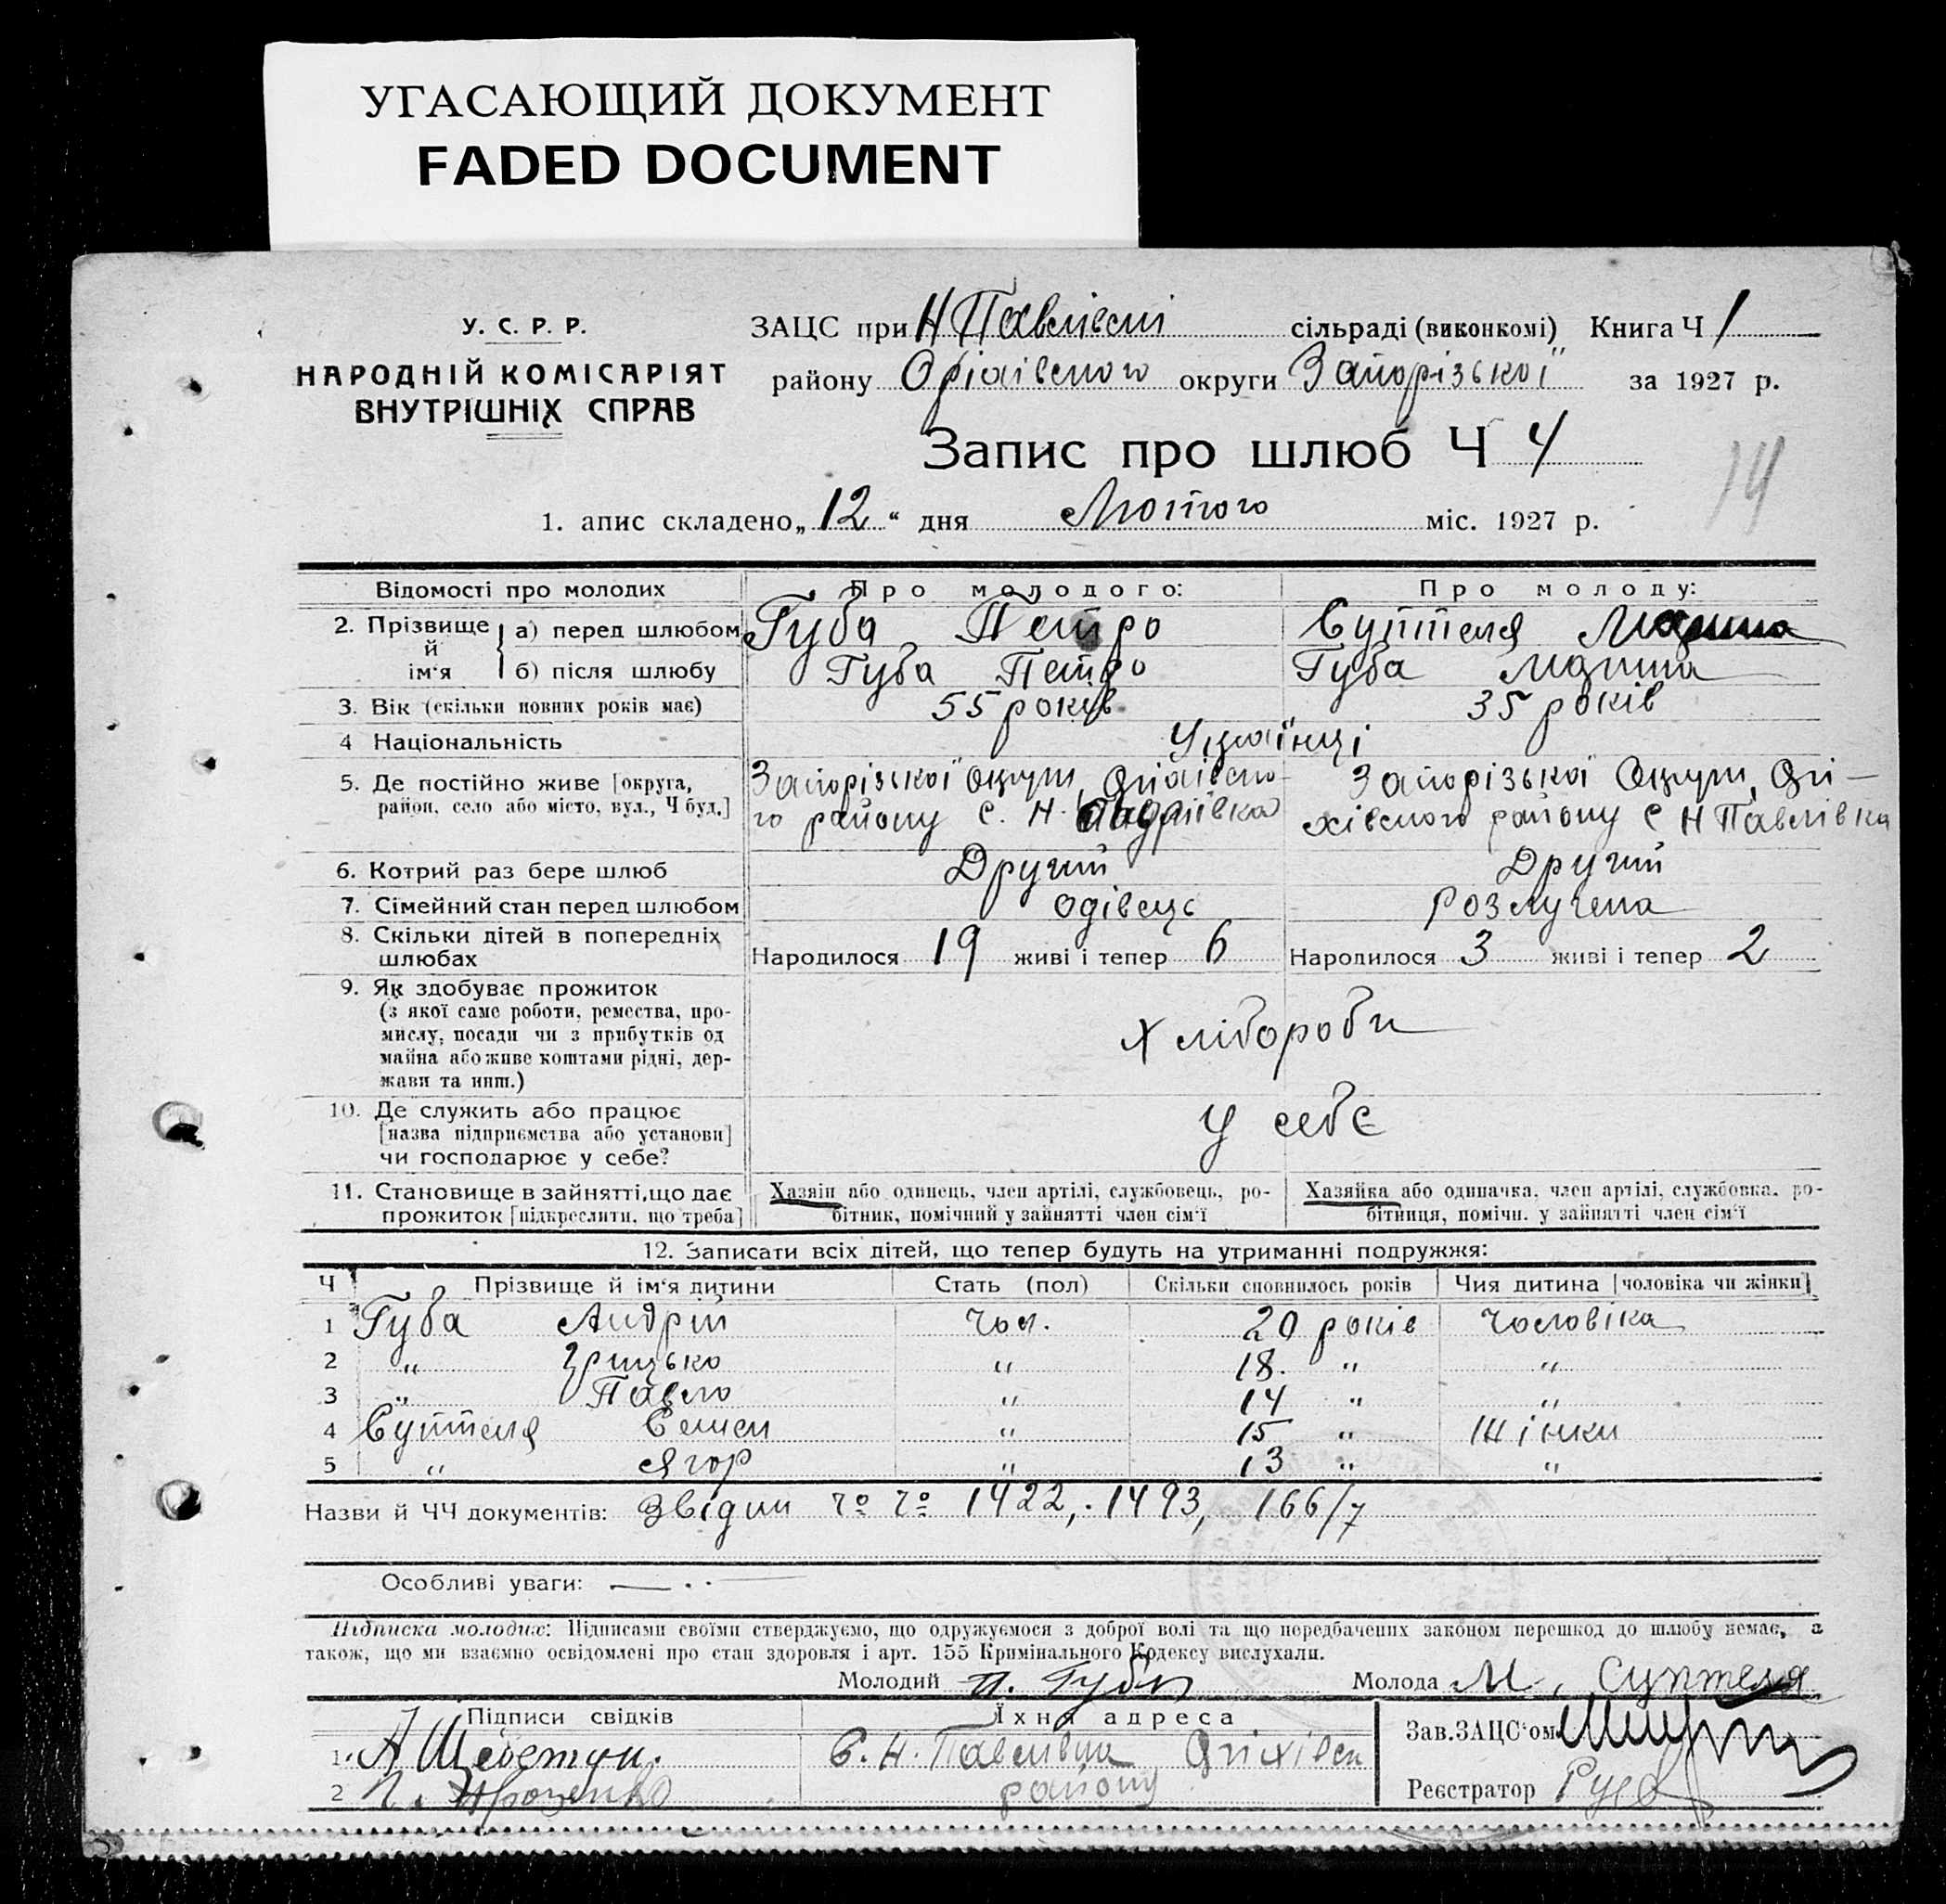 УГАСАЮЩИЙ ДОКУМЕНТ
FADED DOCUMENT
У. С. Р. Р.
НАРОДНІЙ КОМІСАРІЯТ
ВНУТРІШНІХ СПРАВ
ЗАЦС при Н Павлівсті сільраді (виконкомі) Книга Ч 1
району Оріхівського округи Запорізької за 1927 р.
Запис про шлюб Ч 4
14
1. апис складено „ 12 “ дня Лютого міс. 1927 р.
Відомості про молодих Про молодого: Про молоду:
2. Прізвище й ім‘я
а) перед шлюбом Губа Петро Суптеля Марина
б) після шлюбу Губа Петро Губа Марина
3. Вік (скільки повних років має) 55 років 35 років
4 Національність Українці
5. Де постійно живе [округа, район, село або місто, вул., Ч буд.]
Запорізької Округи, Оріхівсько-
го району С. Н.
Запорізької Округи, Орі-
хівського району С Н Павлівка
6. Котрий раз бере шлюб Другий Другий
7. Сімейний стан перед шлюбом Одівець Розлучена
8. Скільки дітей в попередніх шлюбах Народилося 19 живі і тепер 6 Народилося 3 живі і тепер 2
9. Як здобуває прожиток
(з якої саме роботи, ремества, про-
мислу, посади чи з прибутків од
майна або живе коштами рідні, дер-
жави та инш.)
Хлібороби
10. Де служить або працює
[назва підприємства або установи]
чи господарює у себе?
У себе
11. Становище в зайнятті, що дає
прожиток [підкреслити, що треба]
Хазяін або одинець, член артілі, службовець, ро-
бітник, помічний у зайнятті член сім‘ї
Хазяйка або одиначка, член артілі, службовка, ро-
бітниця, помічн. у зайнятті член сім‘ї
12. Записати всіх дітей, що тепер будуть на утриманні подружжя:
Ч Прізвище й ім‘я дитини Стать (пол) Скільки сповнилось років Чия дитина [чоловіка чи жінки]
1 Губа Андрій Чол. 20 років Чоловіка
2 „ Грицько „ 18. „ „
3 „ Павло „ 14 „ „
4 Суптеля Семен „ 15 „ Жінки
5 „ Ягор „ 13 „ „
Назви й ЧЧ документів: Звідки Чо Чо 1422, 1493, 166/7
Особливі уваги: —
Підписка молодих: Підписами своїми стверджуємо, що одружуємося з доброї волі та що передбачених законом перешкод до шлюбу немає, а
також, що ми взаємно освідомлені про стан здоровля і арт. 155 Кримінального Кодексу вислухали.
Молодий П. Губа Молода М. Суптеля
Підписи свідків Їхня адреса
1. А С. Н. Павлівка Оріхівськ
2 району
Зав. ЗАЦС‘ом
Реєстратор